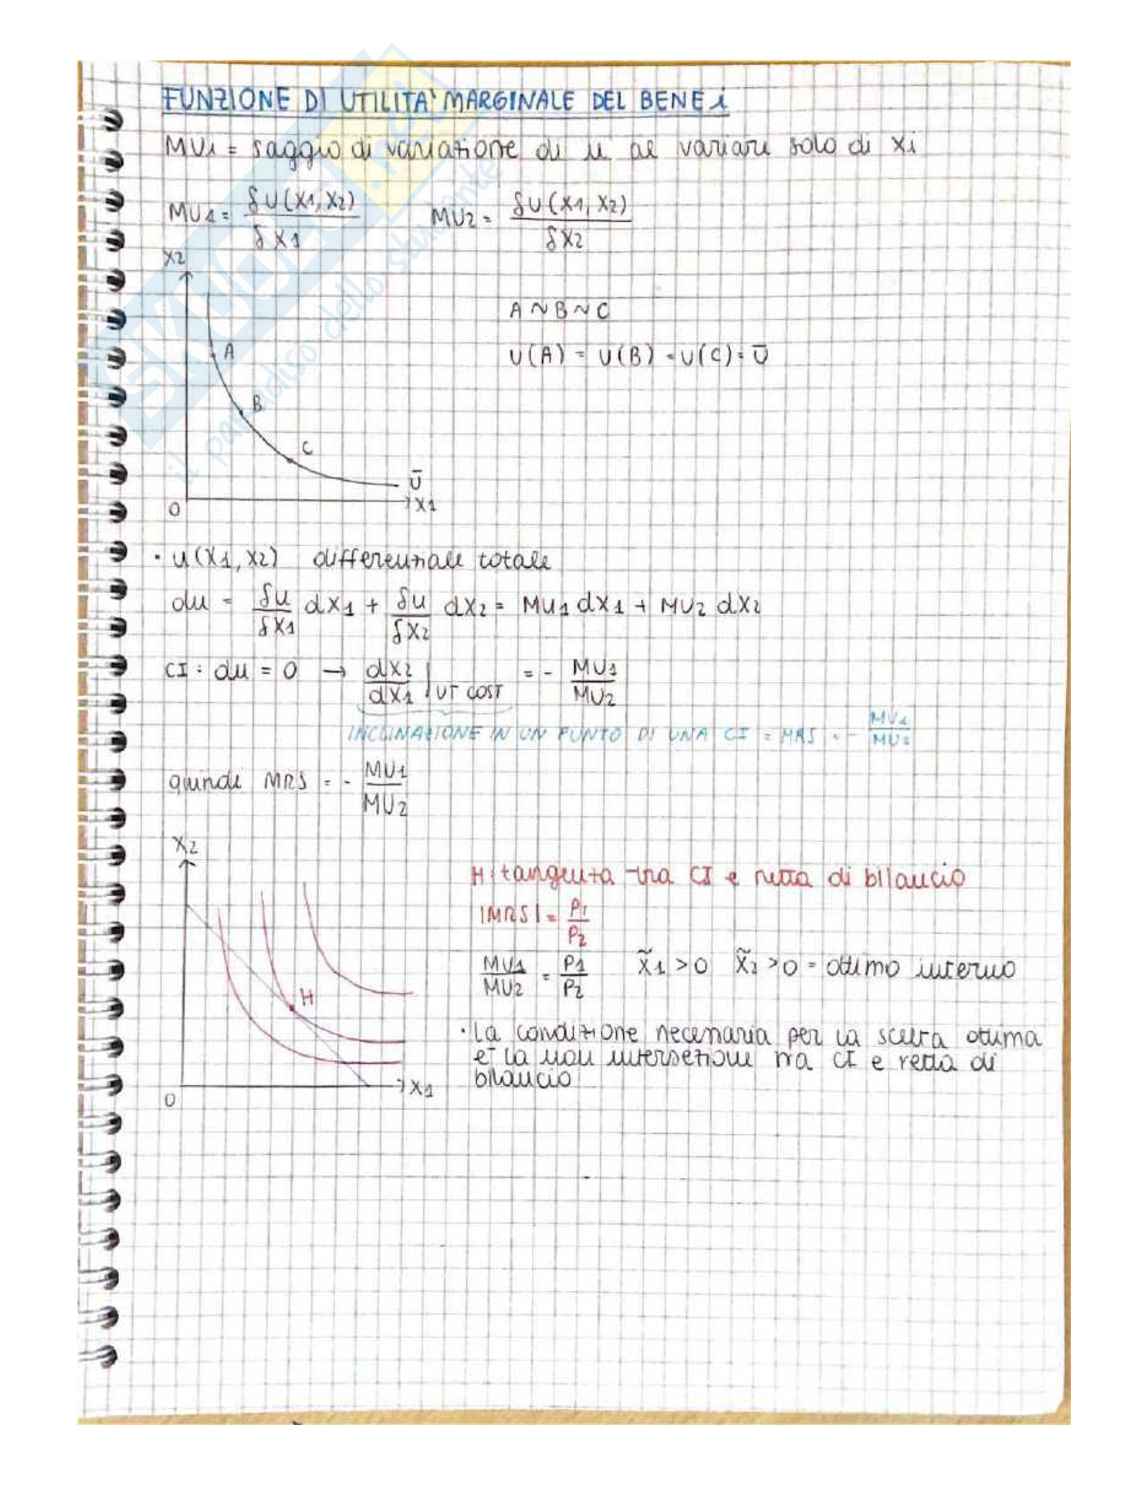 FUNZIONE DI UTILITA' MARGINALE DEL BENE i
MUi = saggio di variazione di u al variare solo di xi
MU1 = δU(X1, X2) / δX1    MU2 = δU(X1, X2) / δX2
X2
A ~ B ~ C
A
U(A) = U(B) = U(C) = Ū
B
C
Ū
0 X1
• u(X1, X2) differenziale totale
du = δu/δX1 dX1 + δu/δX2 dX2 = MU1 dX1 + MU2 dX2
CI : du = 0 → dX2/dX1 | UT COST = - MU1/MU2
INCLINAZIONE IN UN PUNTO DI UNA CI = MRS = - MU1/MU2
quindi MRS = - MU1/MU2
X2
H: tangenza tra CI e retta di bilancio
|MRS| = P1/P2
MU1/MU2 = P1/P2    x̃1 > 0    x̃2 > 0 = ottimo interno
H
• La condizione necessaria per la scelta ottima
è la non intersezione tra CI e retta di
bilancio
0 X1
skuola.net
il paradiso dello studente